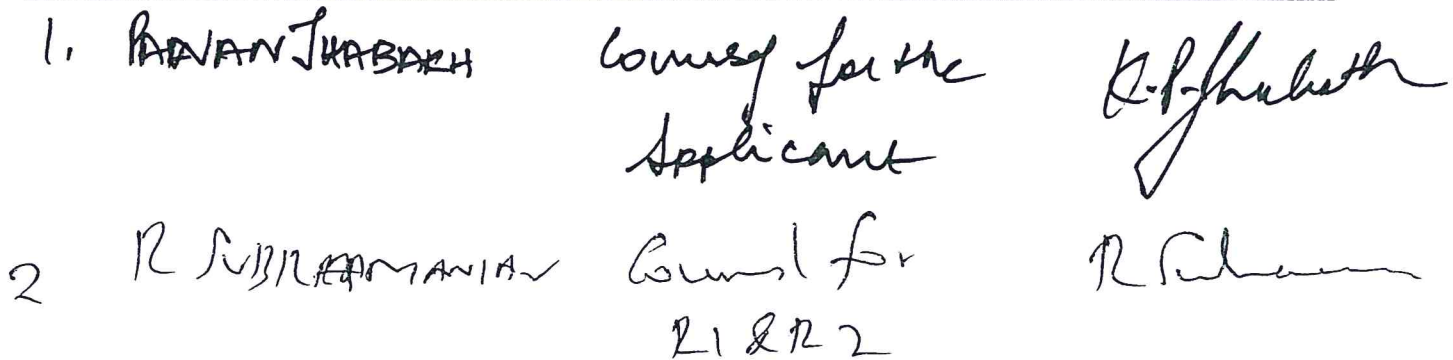 1. PAWAN JHABAKH Counsel for the
Applicant K.P. Jhabakh
2 R SUBRAMANIAN Counsel for R Subraman
R1 & R2